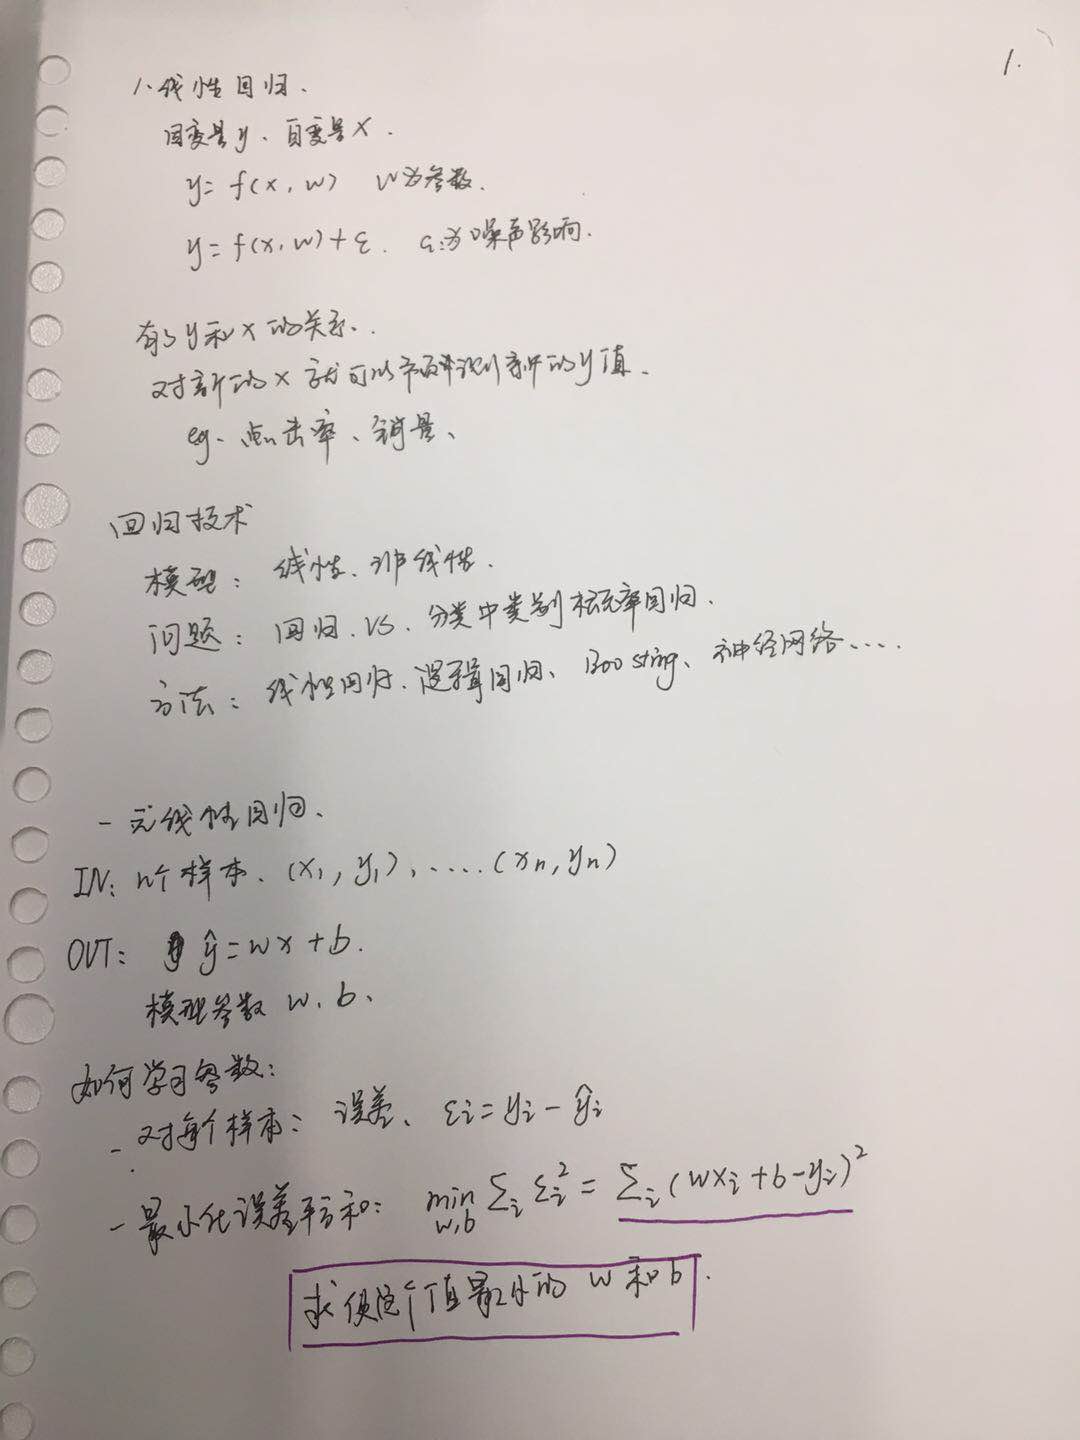 1.
1、线性回归.
因变量y、自变量x.
y= f(x, w) w为参数.
y= f(x, w)+ε. ε:为噪声影响.
有了y和x的关系.
对新的x就可以来预测新的y值.
eg. 点击率、销量、
回归技术
模型: 线性、非线性.
问题: 回归 VS. 分类中类别概率回归.
方法: 线性回归、逻辑回归、Boosting、神经网络....
一元线性回归.
IN: n个样本、(x₁, y₁), ....(xₙ, yₙ)
OUT: ŷ= wx +b.
模型参数 w, b、
如何学习参数:
- 对每个样本: 误差、 εᵢ= yᵢ - ŷᵢ
- 最小化误差平方和: min w,b Σᵢ εᵢ² = Σᵢ (wxᵢ+b-yᵢ)²
求使这个值最小的 w 和 b.